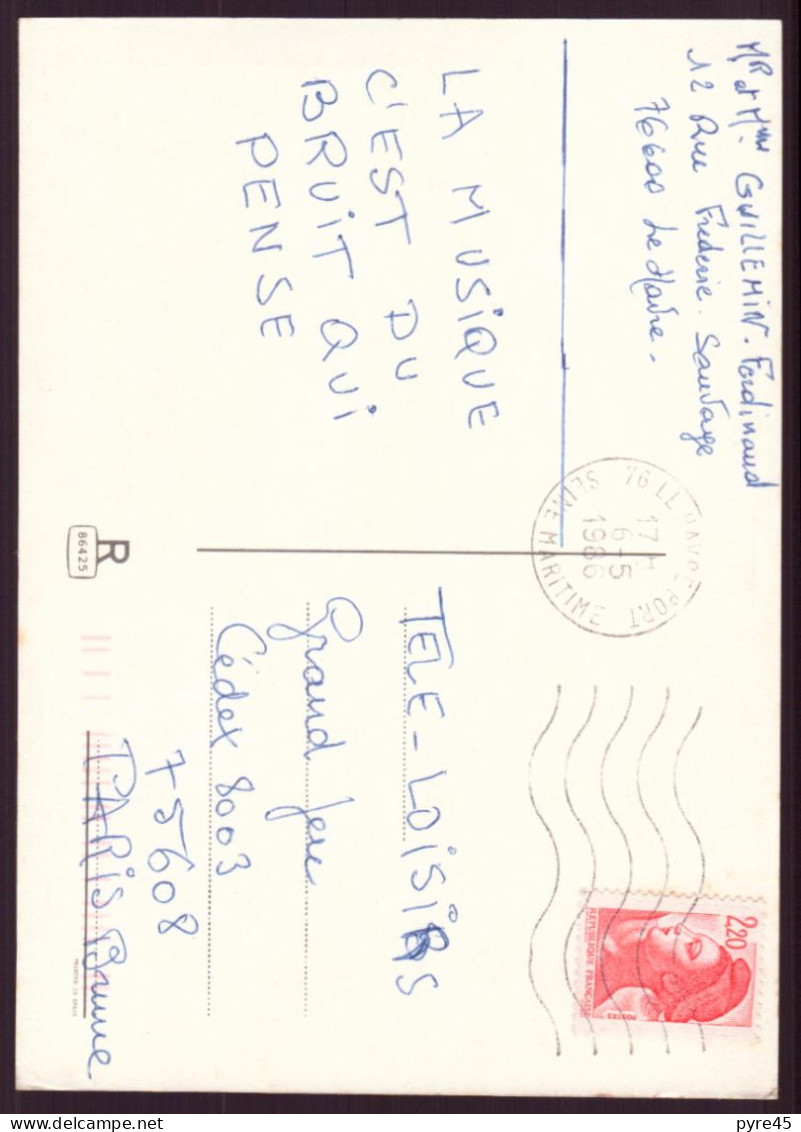 MR et Mme GUILLEMIN. Ferdinand
12 Rue Frédéric. Sauvage
76600 Le Havre.
LA MUSIQUE
C'EST DU
BRUIT QUI
PENSE
76 LE HAVRE PORT
17 H
6-5
1986
SEINE MARITIME
R
86425
TELE-LOISIRS
Grand Jeu
Cédex 8003
75608
PARIS Brune
2,20
REPUBLIQUE FRANÇAISE
POSTES
PRINTED IN SPAIN
pyre45
delcampe.net